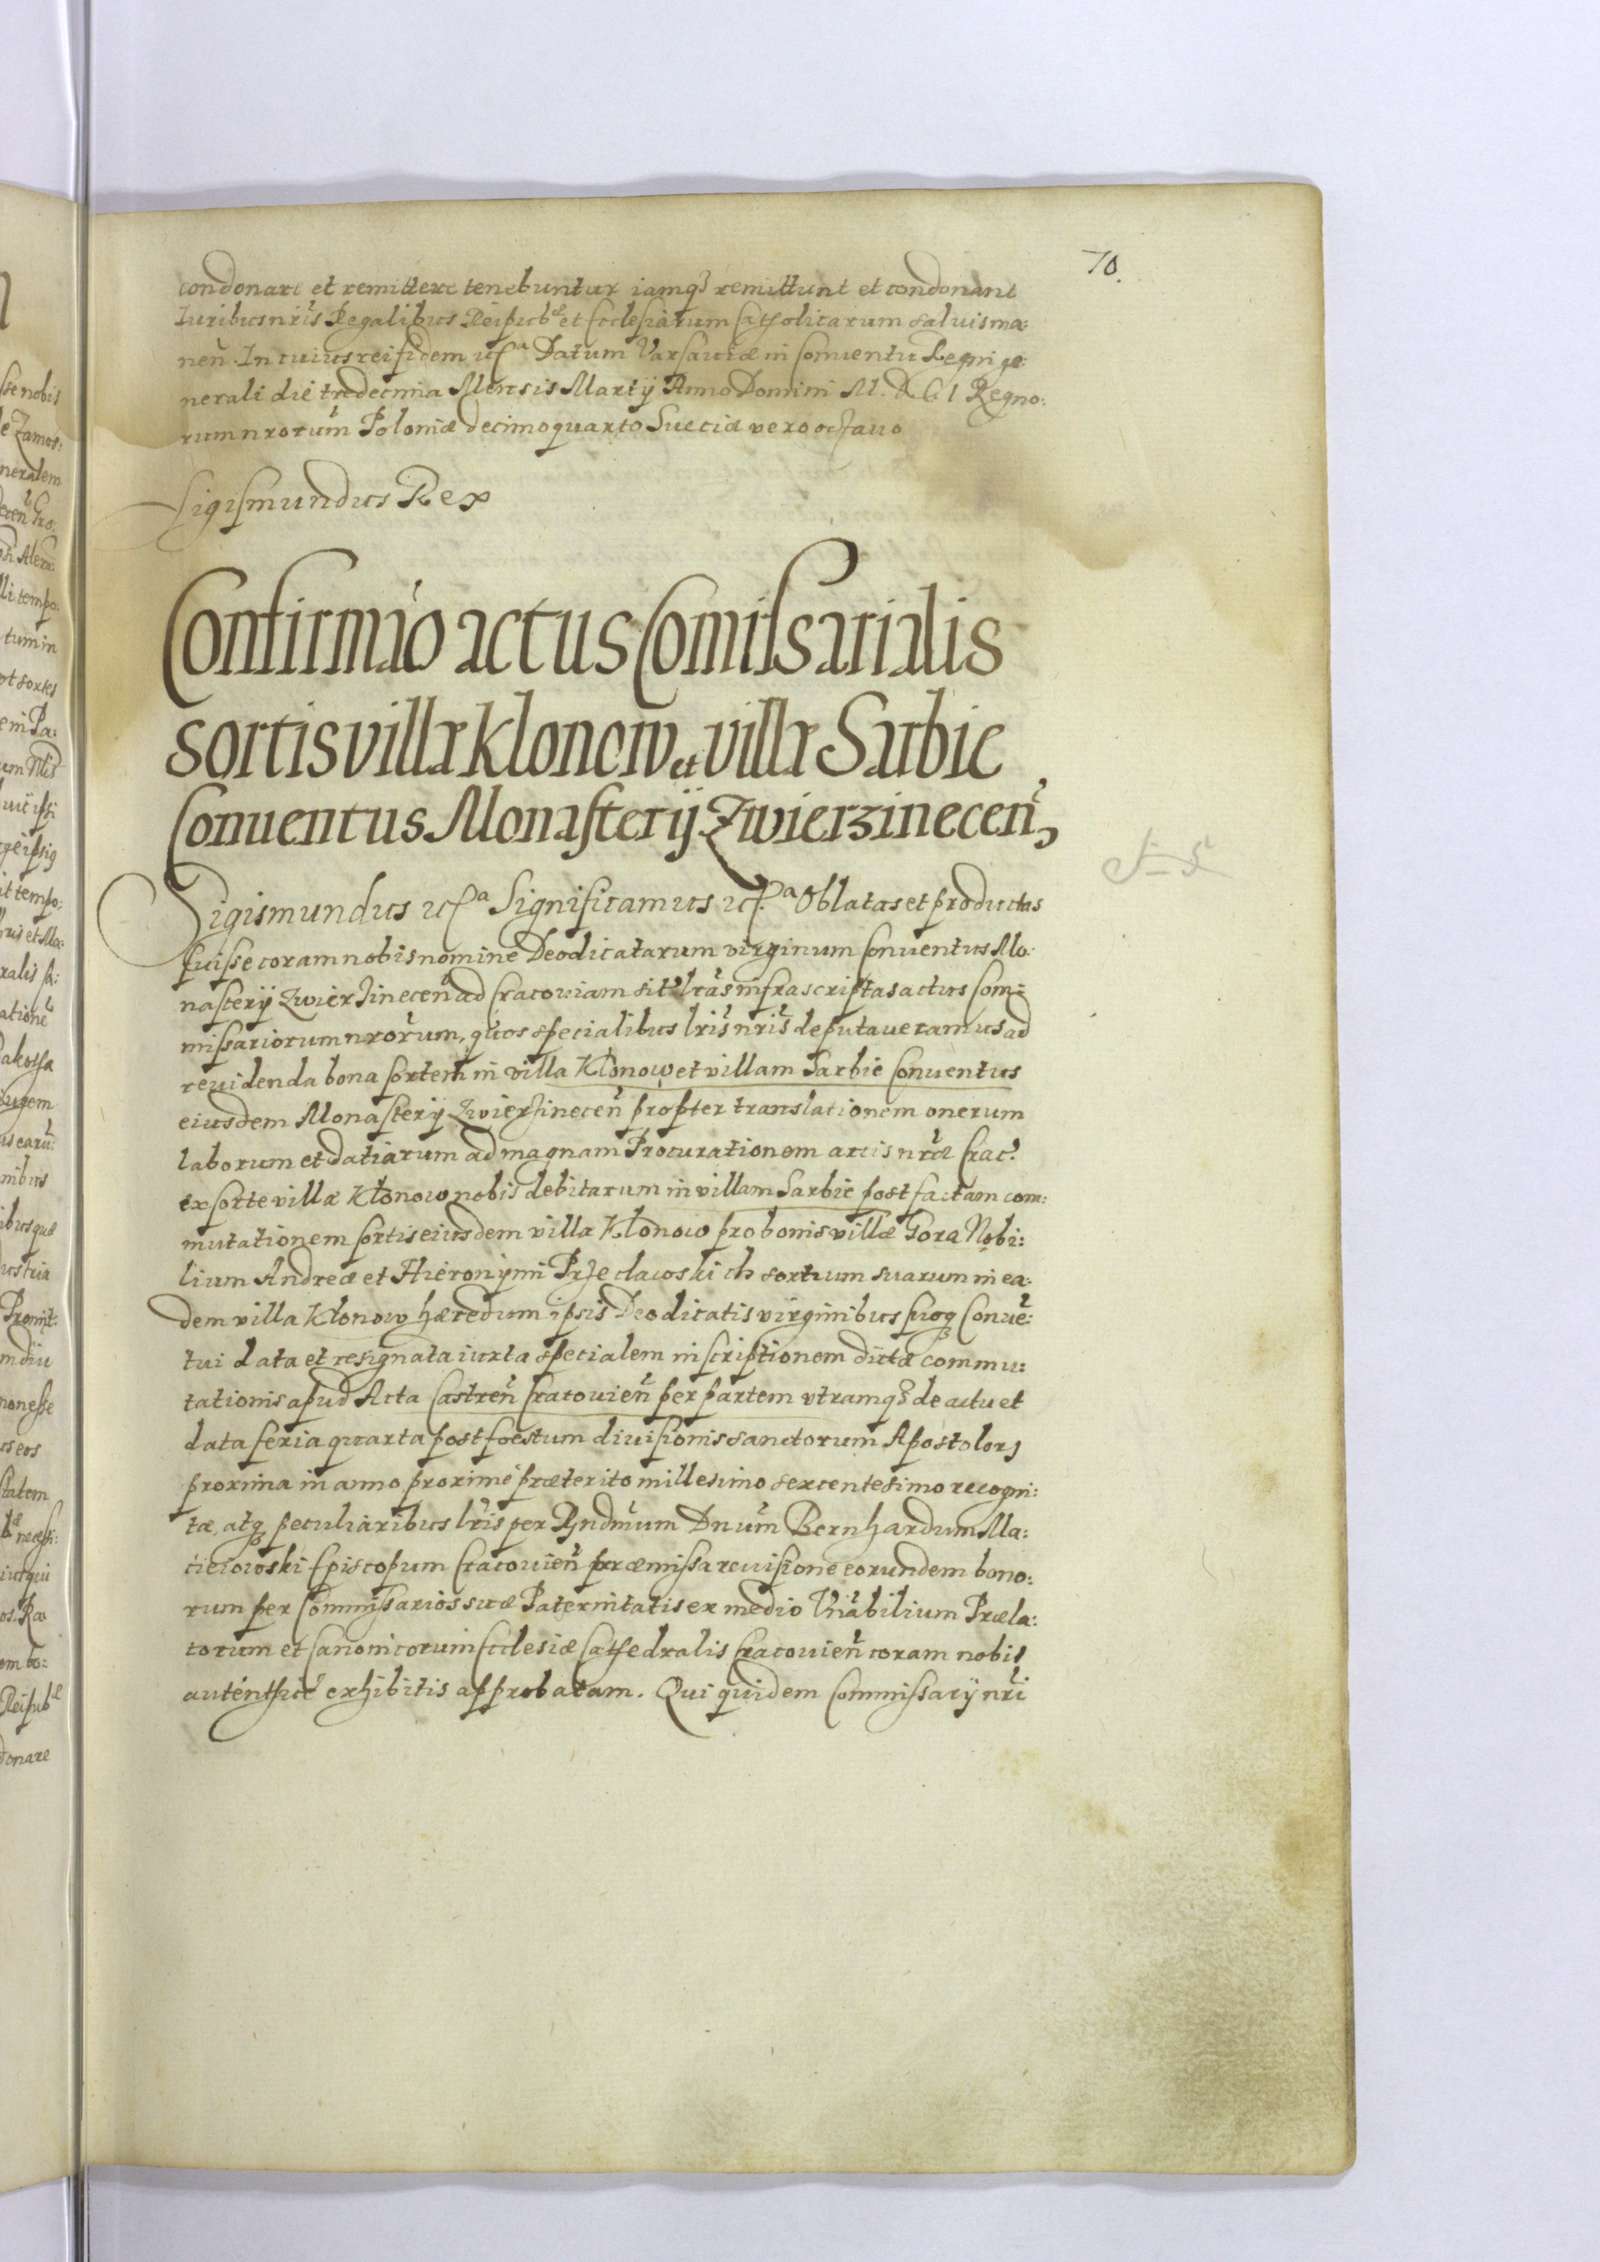 70.
condonare et remittere tenebuntur iamq3 remittunt et condonant
Iuribus nr̃is Regalibus Reipub^cæ et Ecclesiarum Catholicarum saluis ma:
neñ. In cuius rei fidem etc^a Datum Varsauiæ in Conuentu Regni ge:
nerali die tredecima Mensis Martij Anno Domini M. D C I Regno:
rum nrorũm Poloniæ decimo quarto Sueciæ vero octauo
Sigismundus Rex
Confirmão actus Comissarialis
sortis villæ Klonow et villæ Sarbie
Conuentus Monasterij Zwierzineceñ,
Sigismundus etc^a Significamus etc^a Oblatas et productas
fuisse coram nobis nomine Deodicatarum virginum Conuentus Mo:
nasterij Zwierzineceñ ad Cracouiam siti lrãs infrascriptas actus Com=
missariorum nrorũm, quos specialibus lrĩs nrĩs deputaueramus ad
reuidenda bona sortem in villa Klonow et villam Sarbie Conuentus
eiusdem Monasterij Zwierzineceñ propter translationem onerum
laborum et datiarum ad magnam Procurationem arcis nræ Crac:
ex sorte villæ Klonow nobis debitarum in villam Sarbie post factam com:
mutationem sortis eiusdem villæ Klonow pro bonis villæ Gora Nobi:
lium Andreæ et Hieronymi Przecławski ch sortium suarum in ea:
dem villa Klonow hæredum ipsis Deodicatis virginibus suoq3 Conuẽ:
tui data et resignata iuxta specialem inscriptionem dictæ commu:
tationis apud Acta Castreñ Cracouieñ per partem vtramq3 de actu et
data feria quarta post foestum diuisionis sanctorum Apostolorz
proxima in anno proximè præterito millesimo sexcentesimo recogni:
tæ, atq3 peculiaribus lrĩs per Rṽndmum Dnũm Bernhardum Ma:
cieiowski Episcopum Cracouieñ præmissa reuisione eorundem bono:
rum per Commissarios suæ Paternitatis ex medio Vñabilium Præla:
torum et Canonicorum Ecclesiæ Cathedralis Cracouieñ coram nobis
autenthicè exhibitis approbatam. Qui quidem Commissarij nrĩ